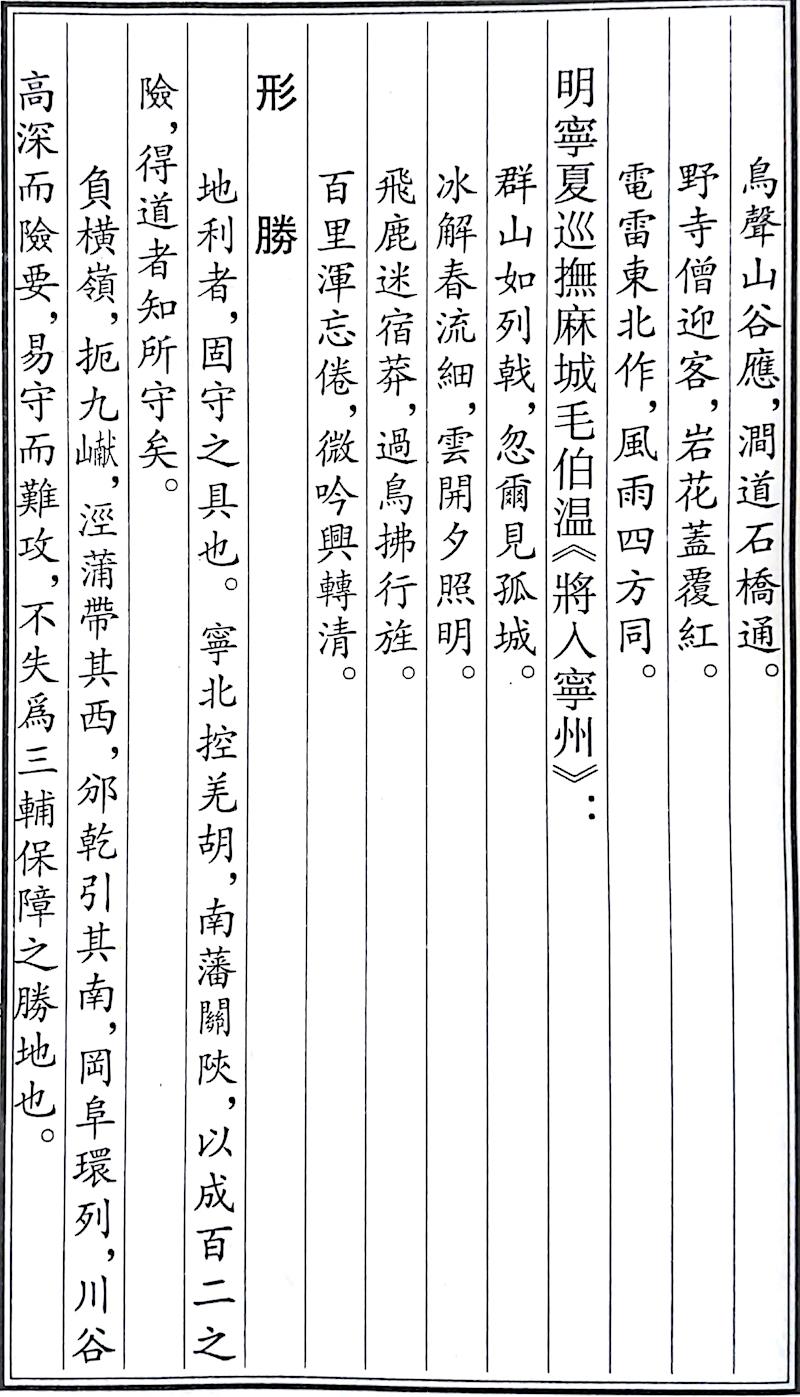 鳥聲山谷應，澗道石橋通。
野寺僧迎客，岩花蓋覆紅。
電雷東北作，風雨四方同。
明寧夏巡撫麻城毛伯温《將入寧州》：
群山如列戟，忽爾見孤城。
冰解春流細，雲開夕照明。
飛鹿迷宿莽，過鳥拂行旌。
百里渾忘倦，微吟興轉清。
形勝
地利者，固守之具也。寧北控羌胡，南藩關陝，以成百二之
險，得道者知所守矣。
負橫嶺，扼九巘，涇蒲帶其西，邠乾引其南，岡阜環列，川谷
高深而險要，易守而難攻，不失爲三輔保障之勝地也。